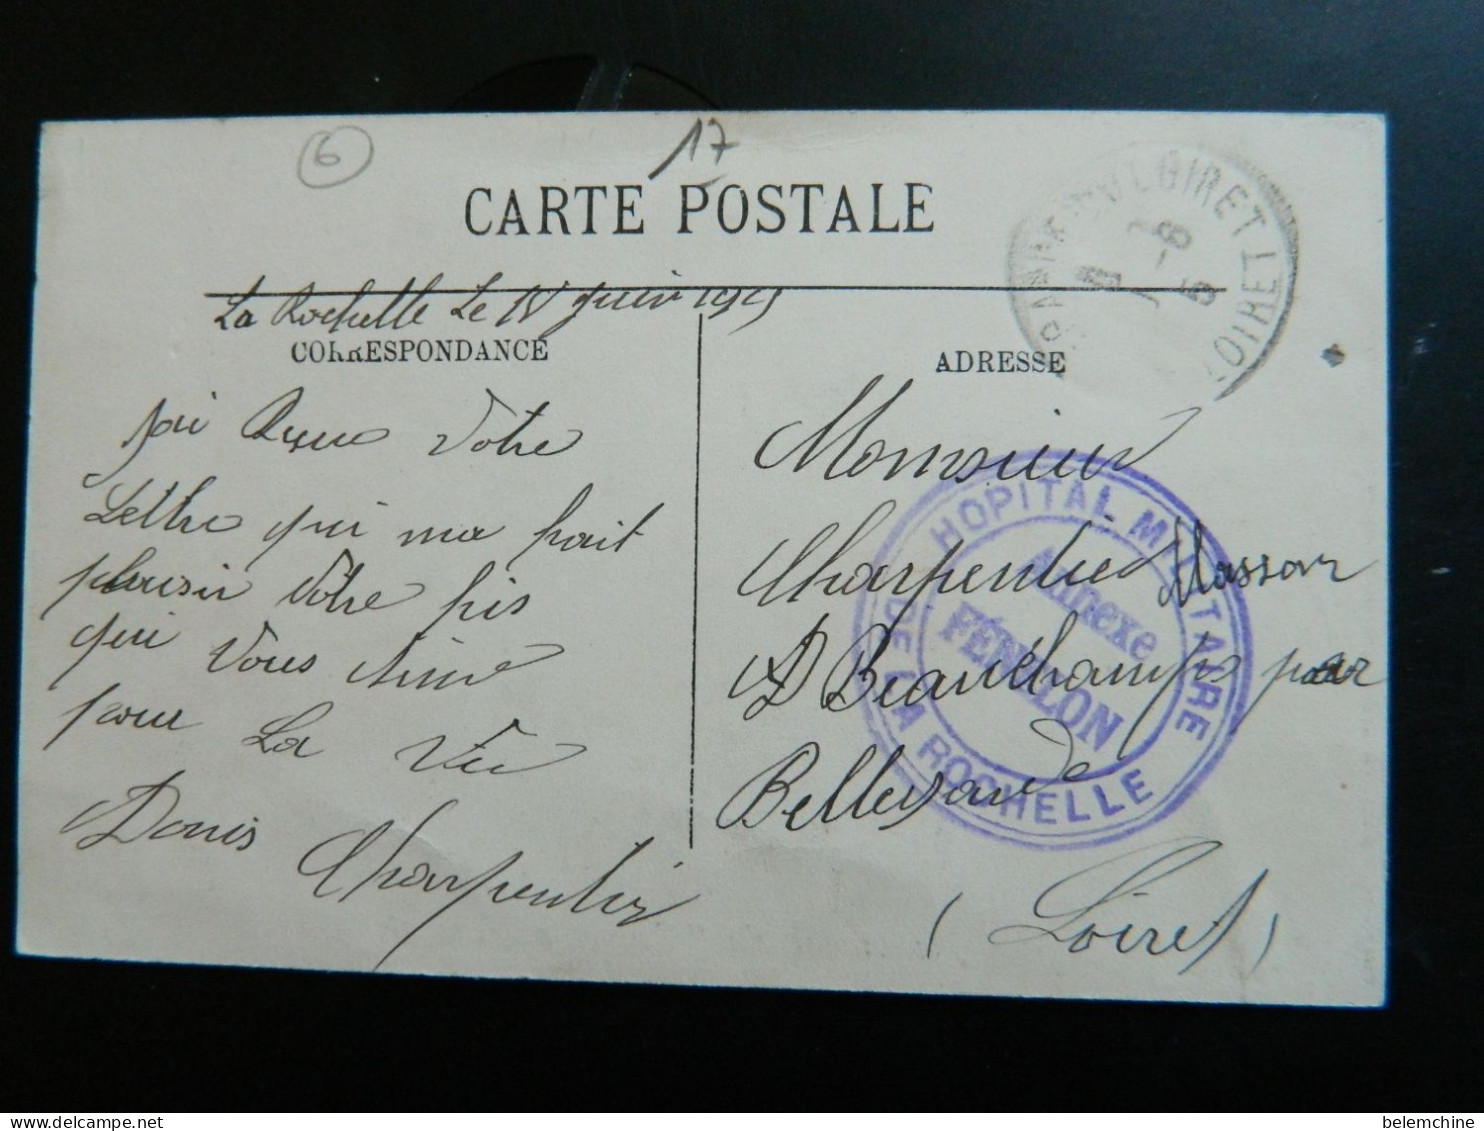 6
17
CARTE POSTALE
La Rochelle Le Juin 1915
CORRESPONDANCE
ADRESSE
jai Reçu Votre
Lettre qui ma fait
plaisir Votre fis
qui Vous aime
pour La Vie
Denis Charpentier
Monsieur
Charpentier Masson
A Beauchamps par
Bellegarde
(Loiret)
LOIRET
HOPITAL MILITAIRE
DE LA ROCHELLE
Annexe
FÉNELON
belemchine